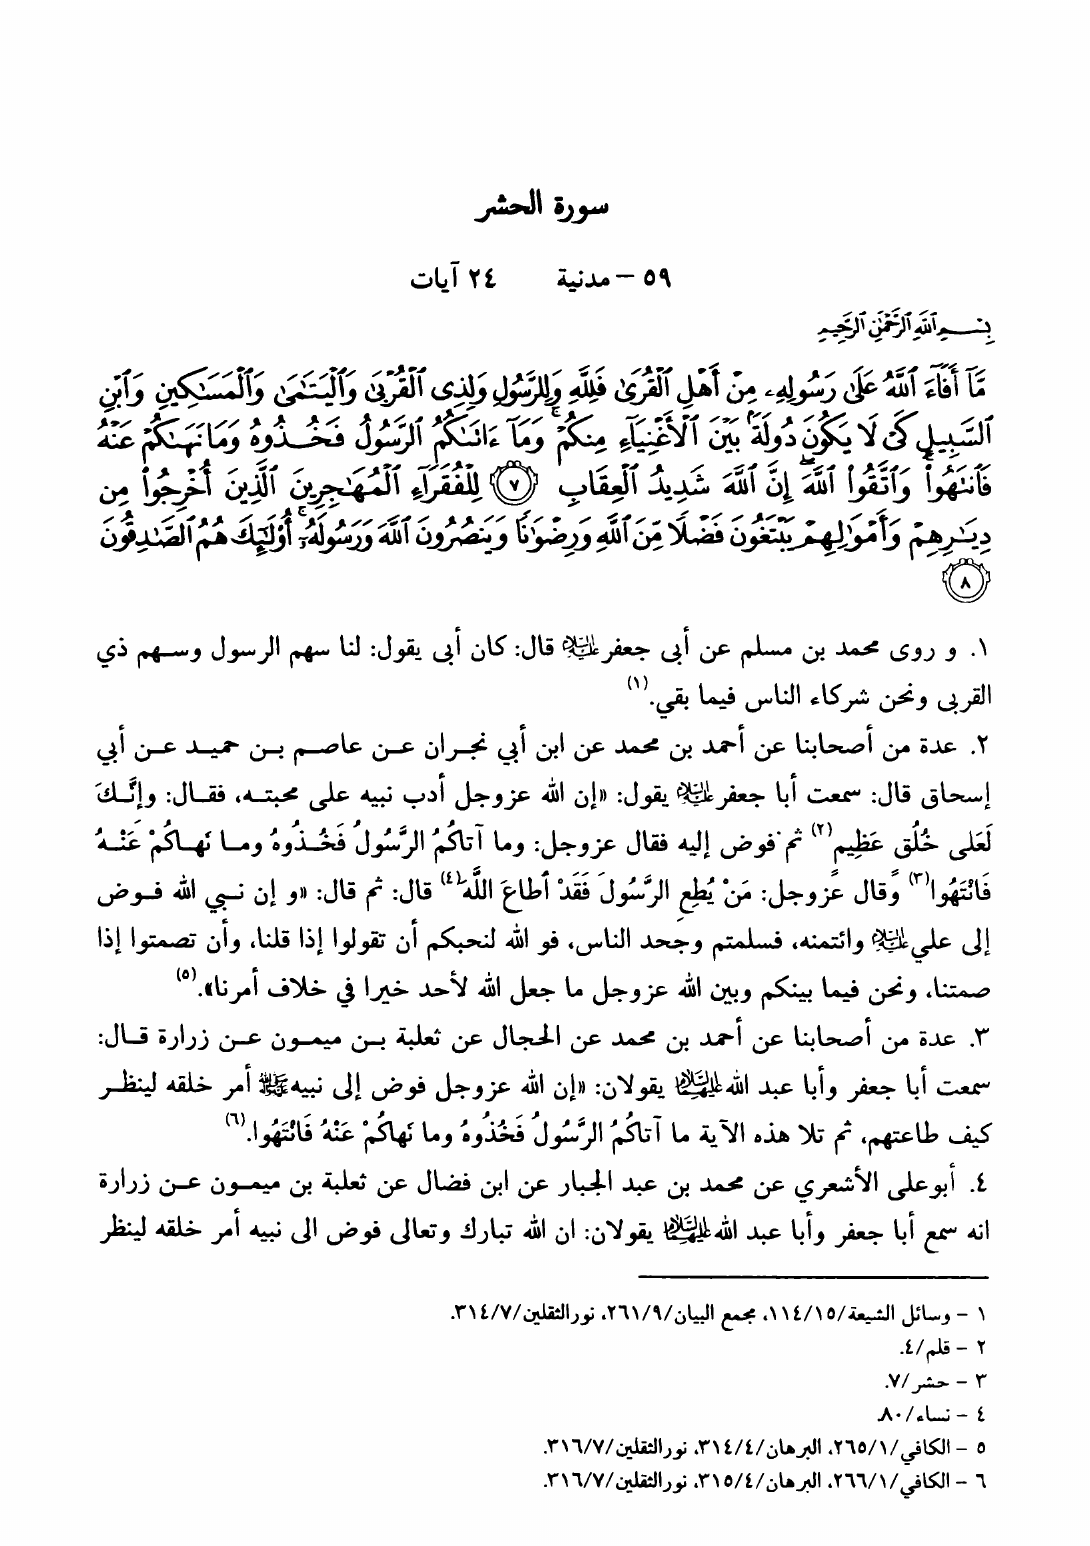 سورة الحشر
٥٩ – مدنية ٢٤ آيات
بِسْمِ اللَّهِ الرَّحْمَٰنِ الرَّحِيمِ
مَّآ أَفَآءَ ٱللَّهُ عَلَىٰ رَسُولِهِۦ مِنْ أَهْلِ ٱلْقُرَىٰ فَلِلَّهِ وَلِلرَّسُولِ وَلِذِى ٱلْقُرْبَىٰ وَٱلْيَتَـٰمَىٰ وَٱلْمَسَـٰكِينِ وَٱبْنِ
ٱلسَّبِيلِ كَىْ لَا يَكُونَ دُولَةًۢ بَيْنَ ٱلْأَغْنِيَآءِ مِنكُمْ ۚ وَمَآ ءَاتَىٰكُمُ ٱلرَّسُولُ فَخُذُوهُ وَمَا نَهَىٰكُمْ عَنْهُ
فَٱنتَهُوا۟ ۚ وَٱتَّقُوا۟ ٱللَّهَ ۖ إِنَّ ٱللَّهَ شَدِيدُ ٱلْعِقَابِ ٧ لِلْفُقَرَآءِ ٱلْمُهَـٰجِرِينَ ٱلَّذِينَ أُخْرِجُوا۟ مِن
دِيَـٰرِهِمْ وَأَمْوَٰلِهِمْ يَبْتَغُونَ فَضْلًا مِّنَ ٱللَّهِ وَرِضْوَٰنًا وَيَنصُرُونَ ٱللَّهَ وَرَسُولَهُۥٓ ۚ أُو۟لَـٰٓئِكَ هُمُ ٱلصَّـٰدِقُونَ
٨
١. و روى محمد بن مسلم عن أبى جعفر عليه السلام قال: كان أبى يقول: لنا سهم الرسول وسهم ذي
القربى ونحن شركاء الناس فيما بقي.(١)
٢. عدة من أصحابنا عن أحمد بن محمد عن ابن أبي نجران عن عاصم بن حميد عن أبي
إسحاق قال: سمعت أبا جعفر عليه السلام يقول: «إن الله عزوجل أدب نبيه على محبته، فقال: وإنَّكَ
لَعَلى خُلُقٍ عَظِيمٍ(٢) ثم فوض إليه فقال عزوجل: وما آتاكُمُ الرَّسُولُ فَخُذُوهُ وما نَهاكُمْ عَنْهُ
فَانْتَهُوا(٣) وقال عزوجل: مَنْ يُطِعِ الرَّسُولَ فَقَدْ أطاعَ اللَّهَ(٤) قال: ثم قال: «و إن نبي الله فوض
إلى علي عليه السلام وائتمنه، فسلمتم وجحد الناس، فو الله لنحبكم أن تقولوا إذا قلنا، وأن تصمتوا إذا
صمتنا، ونحن فيما بينكم وبين الله عزوجل ما جعل الله لأحد خيرا في خلاف أمرنا».(٥)
٣. عدة من أصحابنا عن أحمد بن محمد عن الحجال عن ثعلبة بن ميمون عن زرارة قال:
سمعت أبا جعفر وأبا عبد الله عليهما السلام يقولان: «إن الله عزوجل فوض إلى نبيه صلى الله عليه وآله أمر خلقه لينظر
كيف طاعتهم، ثم تلا هذه الآية ما آتاكُمُ الرَّسُولُ فَخُذُوهُ وما نَهاكُمْ عَنْهُ فَانْتَهُوا.(٦)
٤. أبوعلى الأشعري عن محمد بن عبد الجبار عن ابن فضال عن ثعلبة بن ميمون عن زرارة
انه سمع أبا جعفر وأبا عبد الله عليهما السلام يقولان: ان الله تبارك وتعالى فوض الى نبيه أمر خلقه لينظر
١ – وسائل الشيعة/١١٤/١٥، مجمع البيان/٢٦١/٩، نورالثقلين/٣١٤/٧.
٢ – قلم/٤.
٣ – حشر/٧.
٤ – نساء/٨٠.
٥ – الكافي/٢٦٥/١، البرهان/٣١٤/٤، نورالثقلين/٣١٦/٧.
٦ – الكافي/٢٦٦/١، البرهان/٣١٥/٤، نورالثقلين/٣١٦/٧.